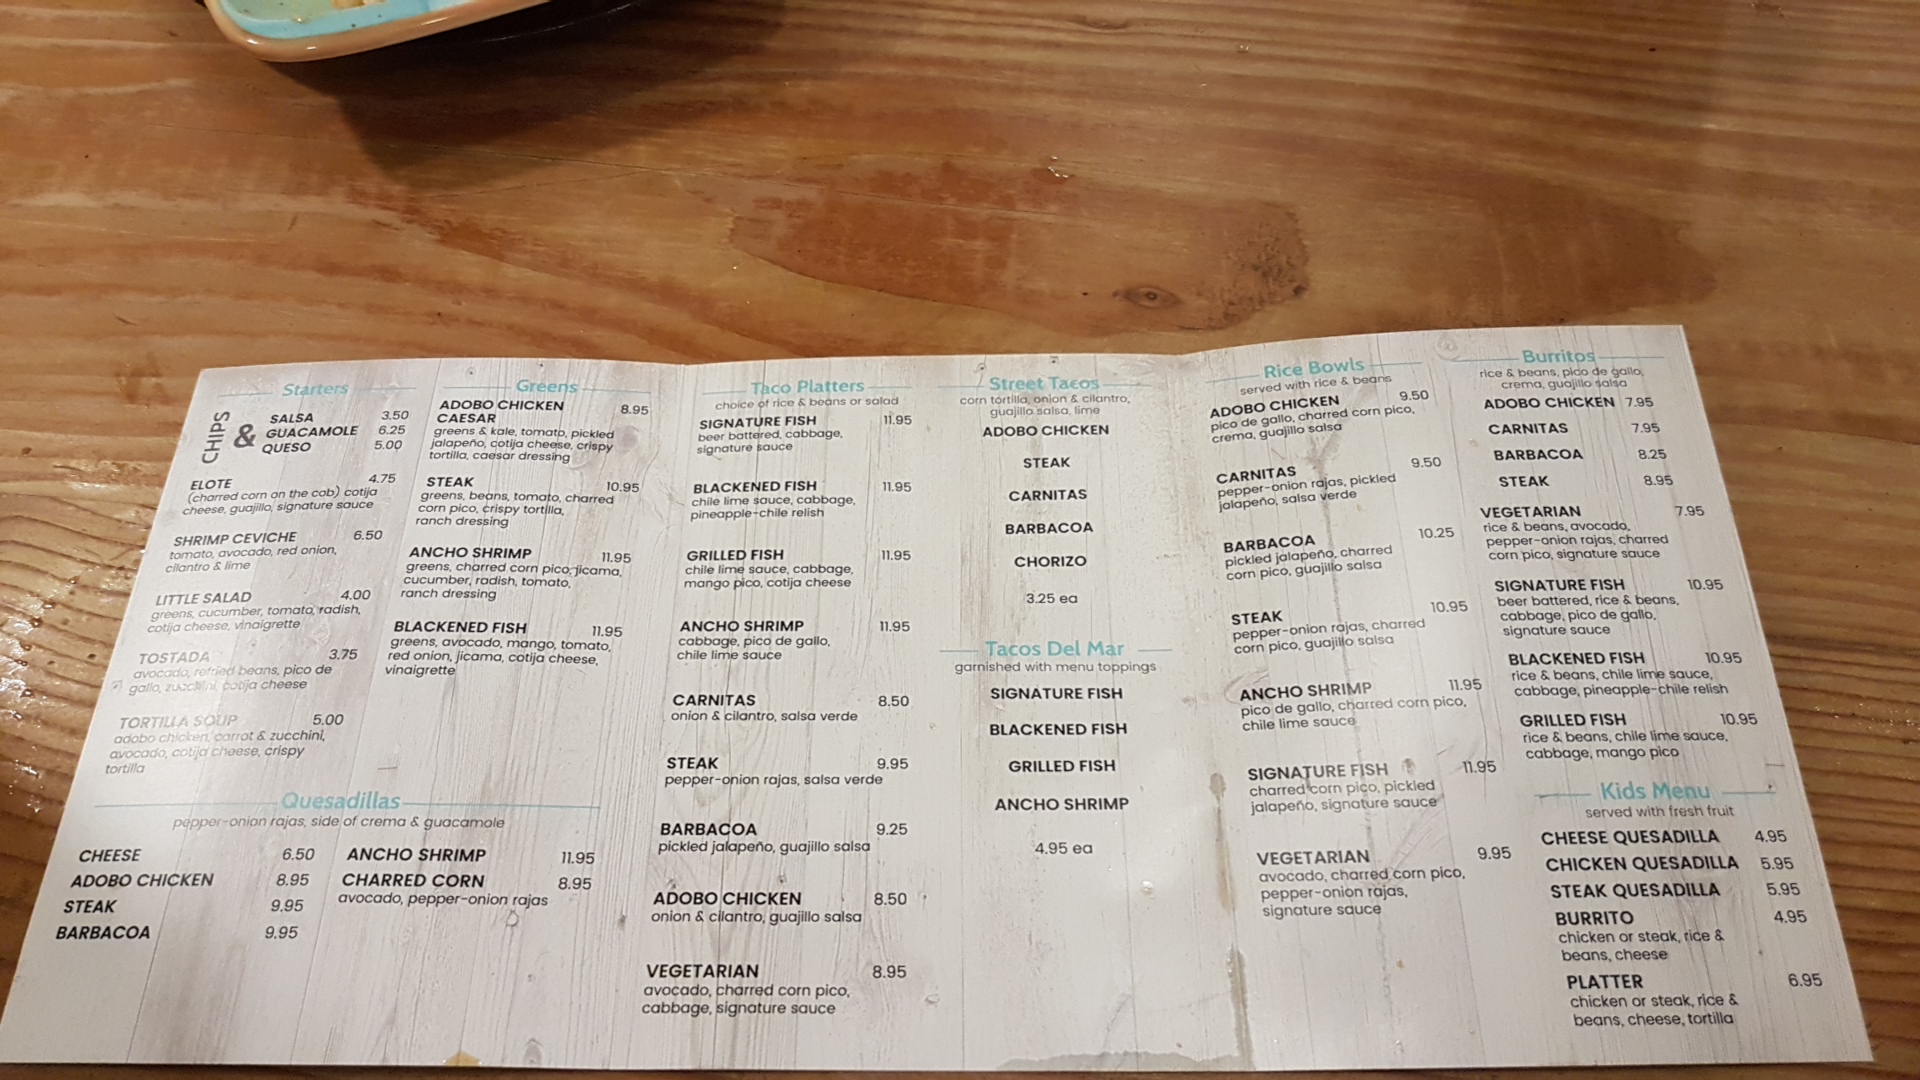 Starters
CHIPS
&
SALSA 3.50
GUACAMOLE 6.25
QUESO 5.00
ELOTE 4.75
(charred corn on the cob) cotija
cheese, guajillo, signature sauce
SHRIMP CEVICHE 6.50
tomato, avocado, red onion,
cilantro & lime
LITTLE SALAD 4.00
greens, cucumber, tomato, radish,
cotija cheese, vinaigrette
TOSTADA 3.75
avocado, refried beans, pico de
gallo, zucchini, cotija cheese
TORTILLA SOUP 5.00
adobo chicken, carrot & zucchini,
avocado, cotija cheese, crispy
tortilla
Greens
ADOBO CHICKEN 8.95
CAESAR
greens & kale, tomato, pickled
jalapeño, cotija cheese, crispy
tortilla, caesar dressing
STEAK 10.95
greens, beans, tomato, charred
corn pico, crispy tortilla,
ranch dressing
ANCHO SHRIMP 11.95
greens, charred corn pico, jicama,
cucumber, radish, tomato,
ranch dressing
BLACKENED FISH 11.95
greens, avocado, mango, tomato,
red onion, jicama, cotija cheese,
vinaigrette
Quesadillas
pepper-onion rajas, side of crema & guacamole
CHEESE 6.50
ADOBO CHICKEN 8.95
STEAK 9.95
BARBACOA 9.95
ANCHO SHRIMP 11.95
CHARRED CORN 8.95
avocado, pepper-onion rajas
Taco Platters
choice of rice & beans or salad
SIGNATURE FISH 11.95
beer battered, cabbage,
signature sauce
BLACKENED FISH 11.95
chile lime sauce, cabbage,
pineapple-chile relish
GRILLED FISH 11.95
chile lime sauce, cabbage,
mango pico, cotija cheese
ANCHO SHRIMP 11.95
cabbage, pico de gallo,
chile lime sauce
CARNITAS 8.50
onion & cilantro, salsa verde
STEAK 9.95
pepper-onion rajas, salsa verde
BARBACOA 9.25
pickled jalapeño, guajillo salsa
ADOBO CHICKEN 8.50
onion & cilantro, guajillo salsa
VEGETARIAN 8.95
avocado, charred corn pico,
cabbage, signature sauce
Street Tacos
corn tortilla, onion & cilantro,
guajillo salsa, lime
ADOBO CHICKEN
STEAK
CARNITAS
BARBACOA
CHORIZO
3.25 ea
Tacos Del Mar
garnished with menu toppings
SIGNATURE FISH
BLACKENED FISH
GRILLED FISH
ANCHO SHRIMP
4.95 ea
Rice Bowls
served with rice & beans
ADOBO CHICKEN 9.50
pico de gallo, charred corn pico,
crema, guajillo salsa
CARNITAS 9.50
pepper-onion rajas, pickled
jalapeño, salsa verde
BARBACOA 10.25
pickled jalapeño, charred
corn pico, guajillo salsa
STEAK 10.95
pepper-onion rajas, charred
corn pico, guajillo salsa
ANCHO SHRIMP 11.95
pico de gallo, charred corn pico,
chile lime sauce
SIGNATURE FISH 11.95
charred corn pico, pickled
jalapeño, signature sauce
VEGETARIAN 9.95
avocado, charred corn pico,
pepper-onion rajas,
signature sauce
Burritos
rice & beans, pico de gallo,
crema, guajillo salsa
ADOBO CHICKEN 7.95
CARNITAS 7.95
BARBACOA 8.25
STEAK 8.95
VEGETARIAN 7.95
rice & beans, avocado,
pepper-onion rajas, charred
corn pico, signature sauce
SIGNATURE FISH 10.95
beer battered, rice & beans,
cabbage, pico de gallo,
signature sauce
BLACKENED FISH 10.95
rice & beans, chile lime sauce,
cabbage, pineapple-chile relish
GRILLED FISH 10.95
rice & beans, chile lime sauce,
cabbage, mango pico
Kids Menu
served with fresh fruit
CHEESE QUESADILLA 4.95
CHICKEN QUESADILLA 5.95
STEAK QUESADILLA 5.95
BURRITO 4.95
chicken or steak, rice &
beans, cheese
PLATTER 6.95
chicken or steak, rice &
beans, cheese, tortilla